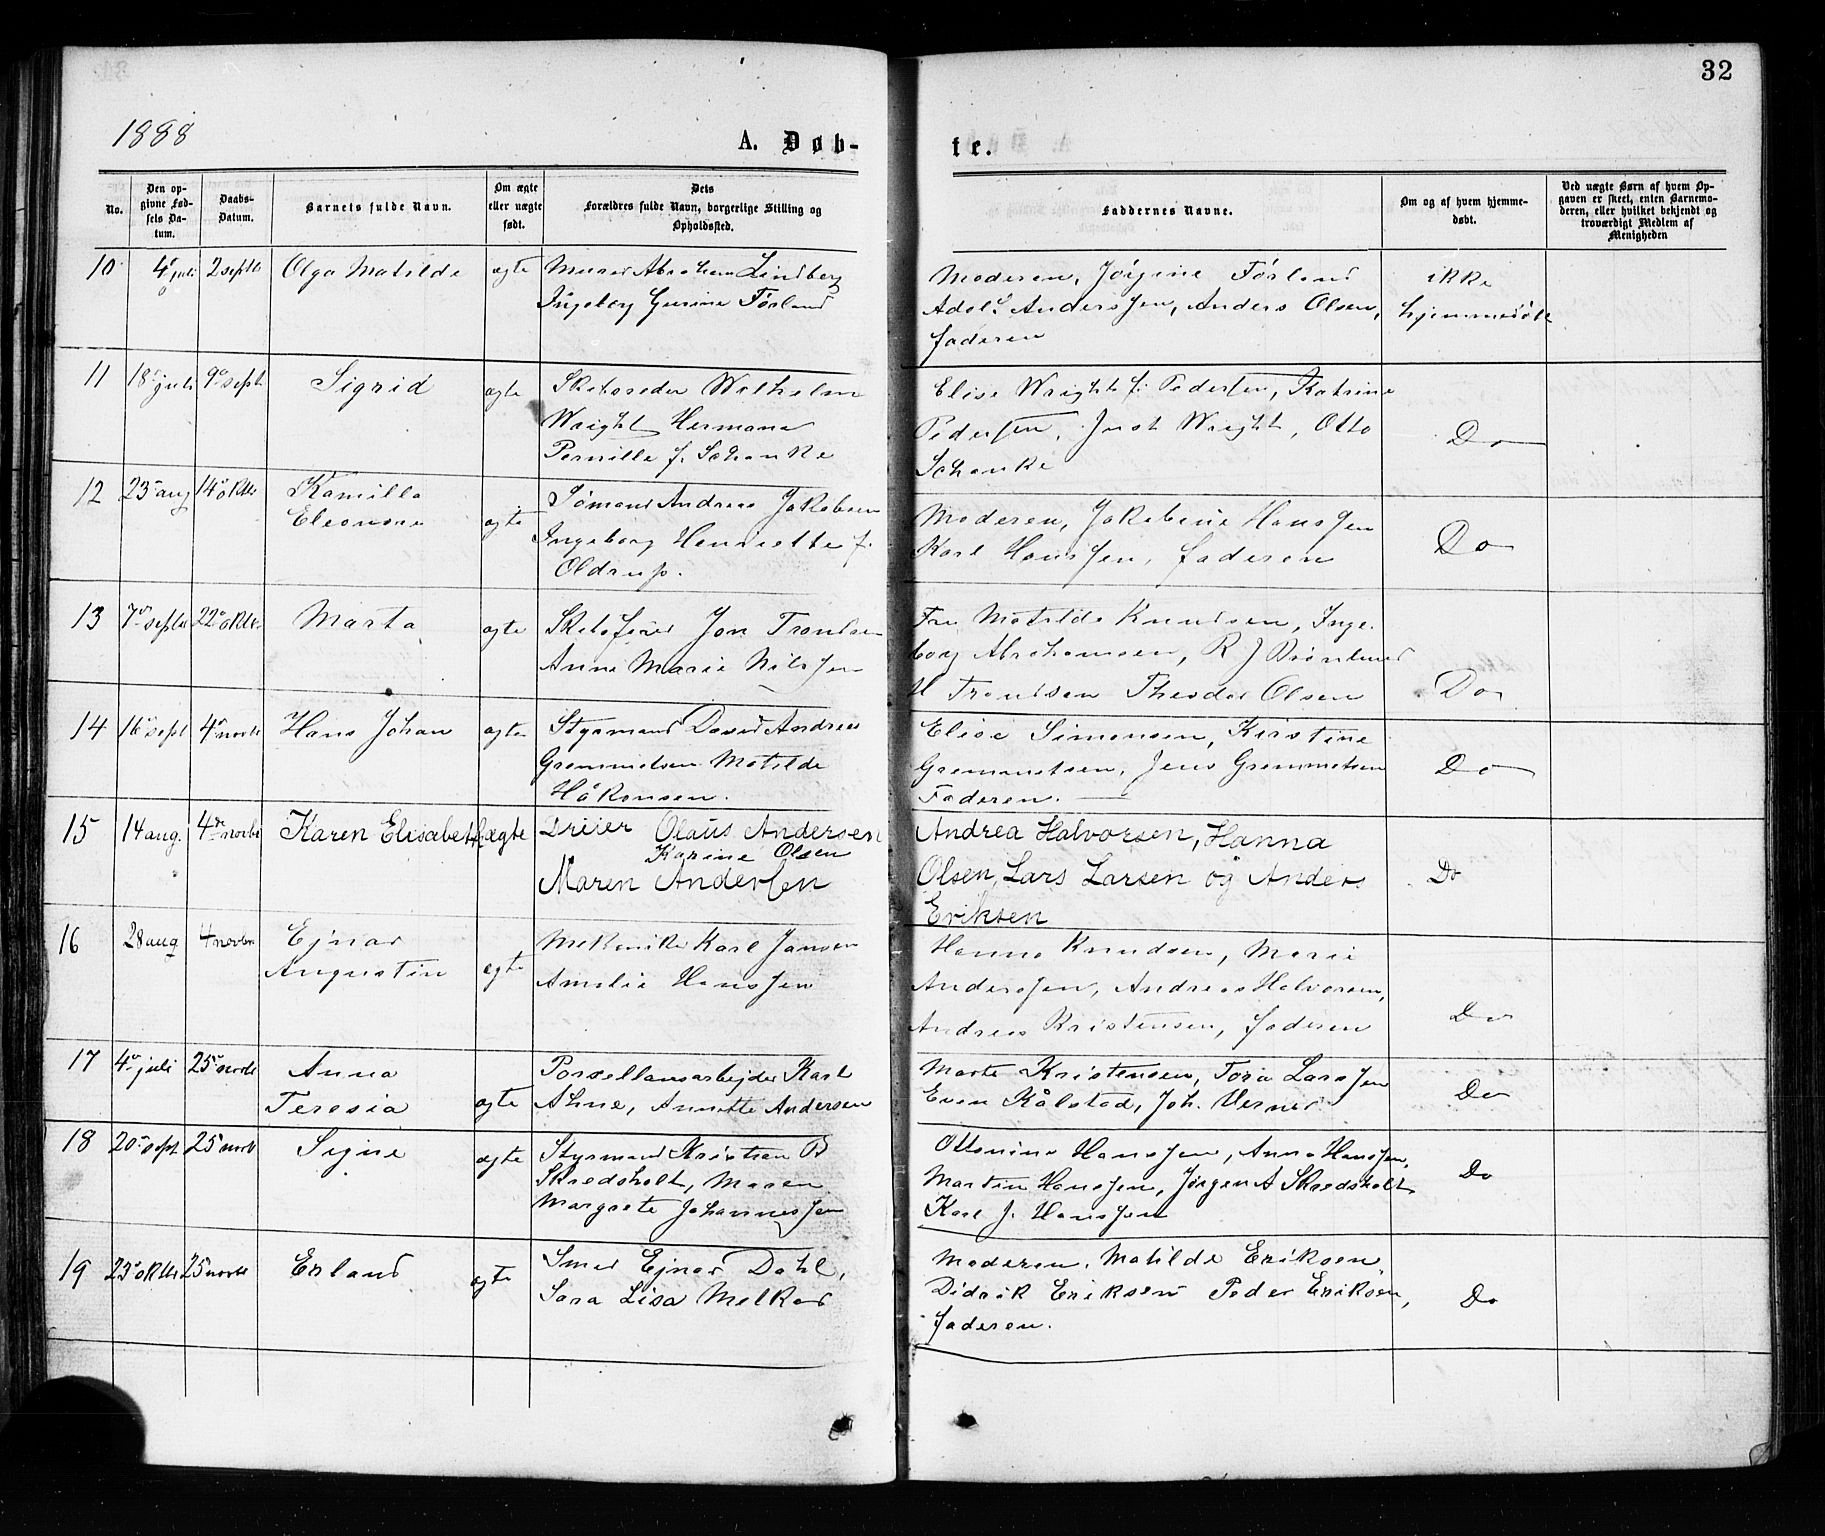 32
1888
A. Døb-
te.
No.
Den op-
givne Fød-
sels Da-
tum.
Daabs-
Datum.
Barnets fulde Navn.
Om ægte
eller uægte
født.
Dets
Forældres fulde Navn, borgerlige Stilling og
Opholdssted.
Faddernes Navne.
Om og af hvem hjemme-
døbt.
Ved uægte Børn af hvem Op-
gaven er skeet, enten Barnemo-
deren, eller hvilket bekjendt og
troværdigt Medlem af
Menigheden
10 4 juli 2 septb Olga Matilde ægte Murer Abraham Lindberg
Ingeborg Gurine Førland
Moderen, Jørgine Førland
Adolf Anderssen, Anders Olsen,
faderen
ikke
hjemmedøbt
11 18 juli 9 sept Sigrid ægte Skibsreder Wilhelm
Wright Hermana
Pernille f. Schanke
Elise Wright f. Pedersen, Katrine
Pedersen, Just Wright, Otto
Schanke
Do
12 23 aug 14 oktb Kamilla
Eleonore
ægte
Sømand Andreas Jakobsen
Ingeborg Henriette f.
Oldrup.
Moderen, Jakobine Hanssen
Karl Hanssen, faderen
Do
13 7 septb 22 oktb. Marta ægte Skibsfører Jon Trondsen
Anne Marie Nilssen
Fru Matilde Knudsen, Inge-
borg Abrahamsen, R J
H Trondsen Theodor Olsen
Do
14 16 sept 4 novb Hans Johan ægte Styrmand David Andreas
Gremmetsen Matilde
Håkonsen.
Elise Simonsen, Kirstine
Gremmetsen, Jens Gremmetsen
Faderen.
Do
15 14 aug. 4de novbr Karen Elisabeth ægte Dreier Olaus Andersen
Karine Olsen
Maren Andersen
Andrea Halvorsen, Hanna
Olsen, Lars Larsen og Anders
Eriksen
Do
16 28 aug 4 novbr Ejnar
Augustin
ægte
Mekanike Karl Jansen
Amalie Hanssen
Hanna Knudsen, Marie
Anderssen, Andreas Halvorsen,
Andreas Kristensen, faderen
Do
17 4 juli 25 novb Anna
Teresia
ægte
Porsellansarbejder Karl
Ahne, Annette Andersen
Marte Kristensen, Tora Larssen
Even Kålstad, Joh. Verner
Do
18 20 sept 25 novb Signe ægte Styrmand Kristian B
Skredsholt, Maren
Margrete Johannessen
Ottomine Hanssen, Anna Hanssen,
Martin Hanssen, Jørgen A Skredsholt
Karl J. Hanssen
Do
19 23 oktb 25 novb Erland ægte Smed Ejnar Dahl,
Sara Lisa Melkor
Moderen, Matilde Eriksen,
Didrik Eriksen Peder Eriksen,
faderen.
Do